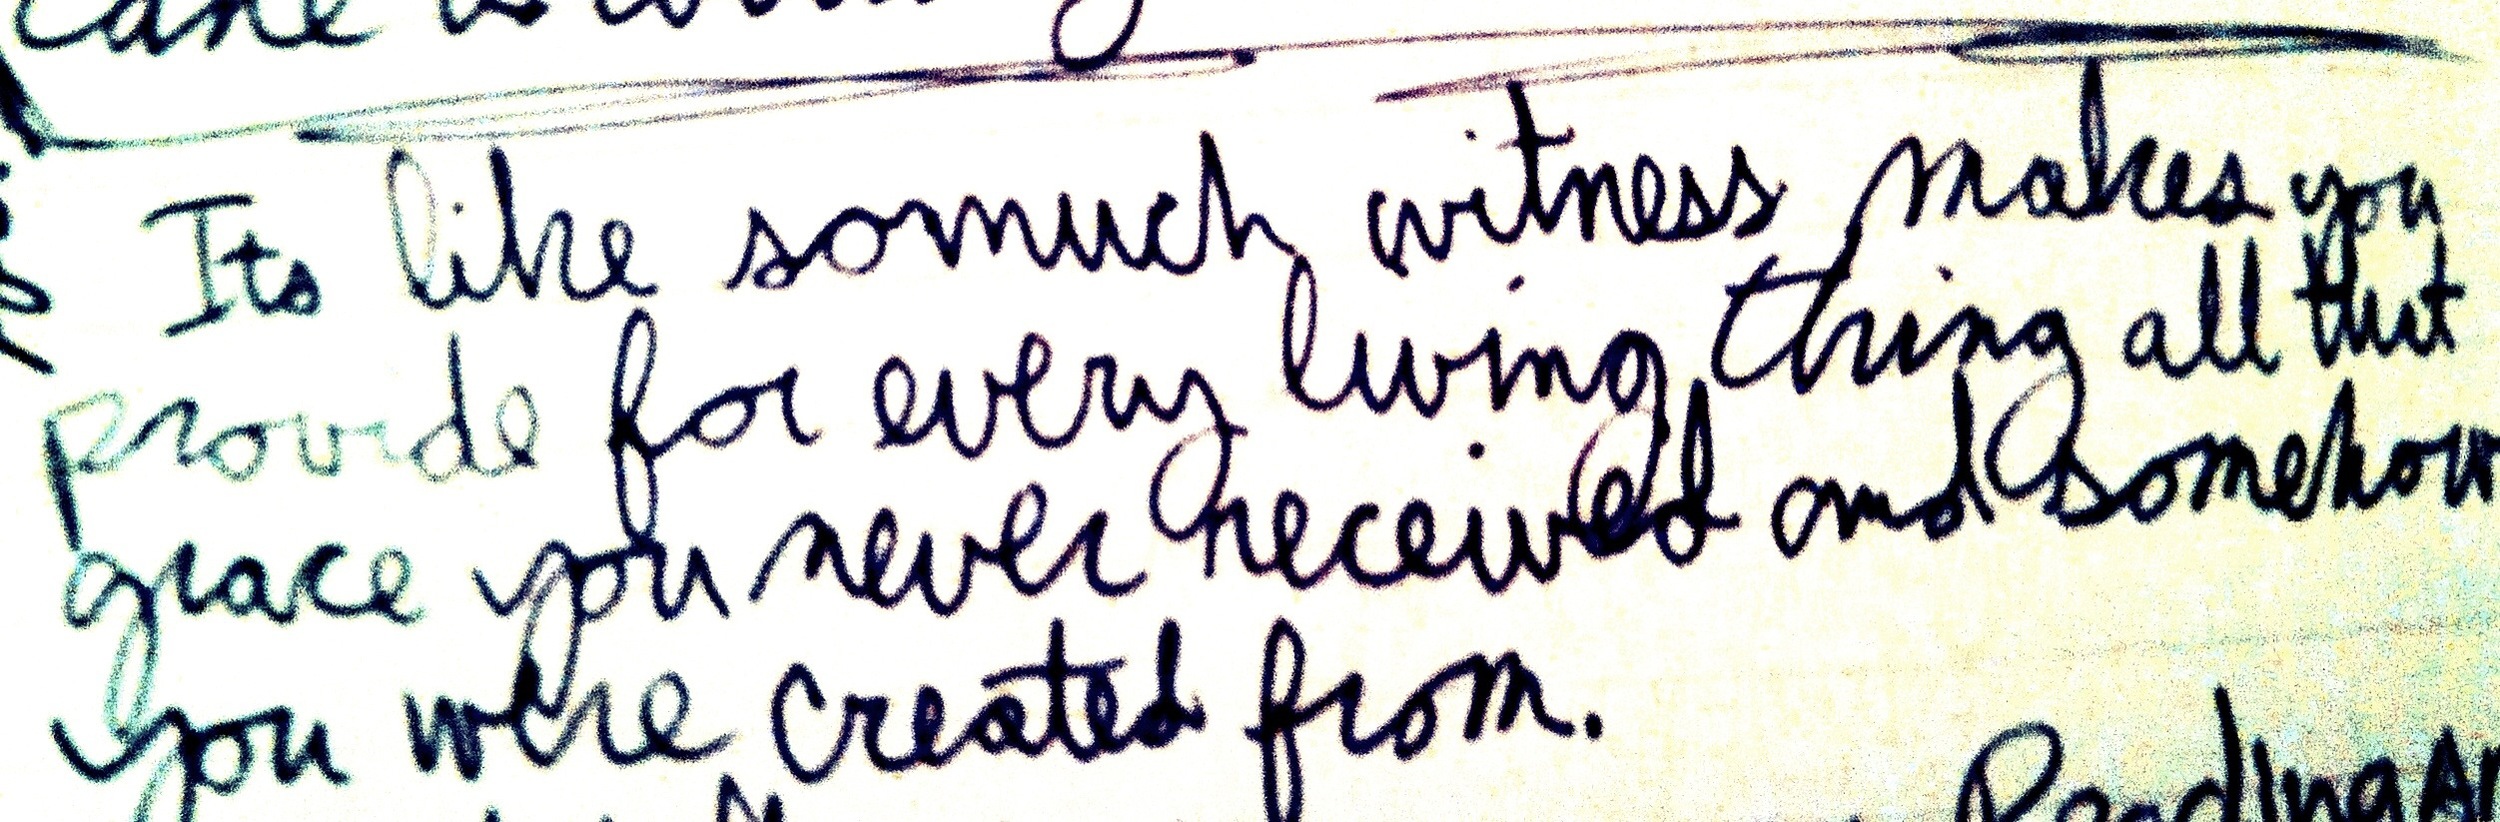 Its like somuch witness makes you
provide for every living thing all that
grace you never received and somehow
you were created from.